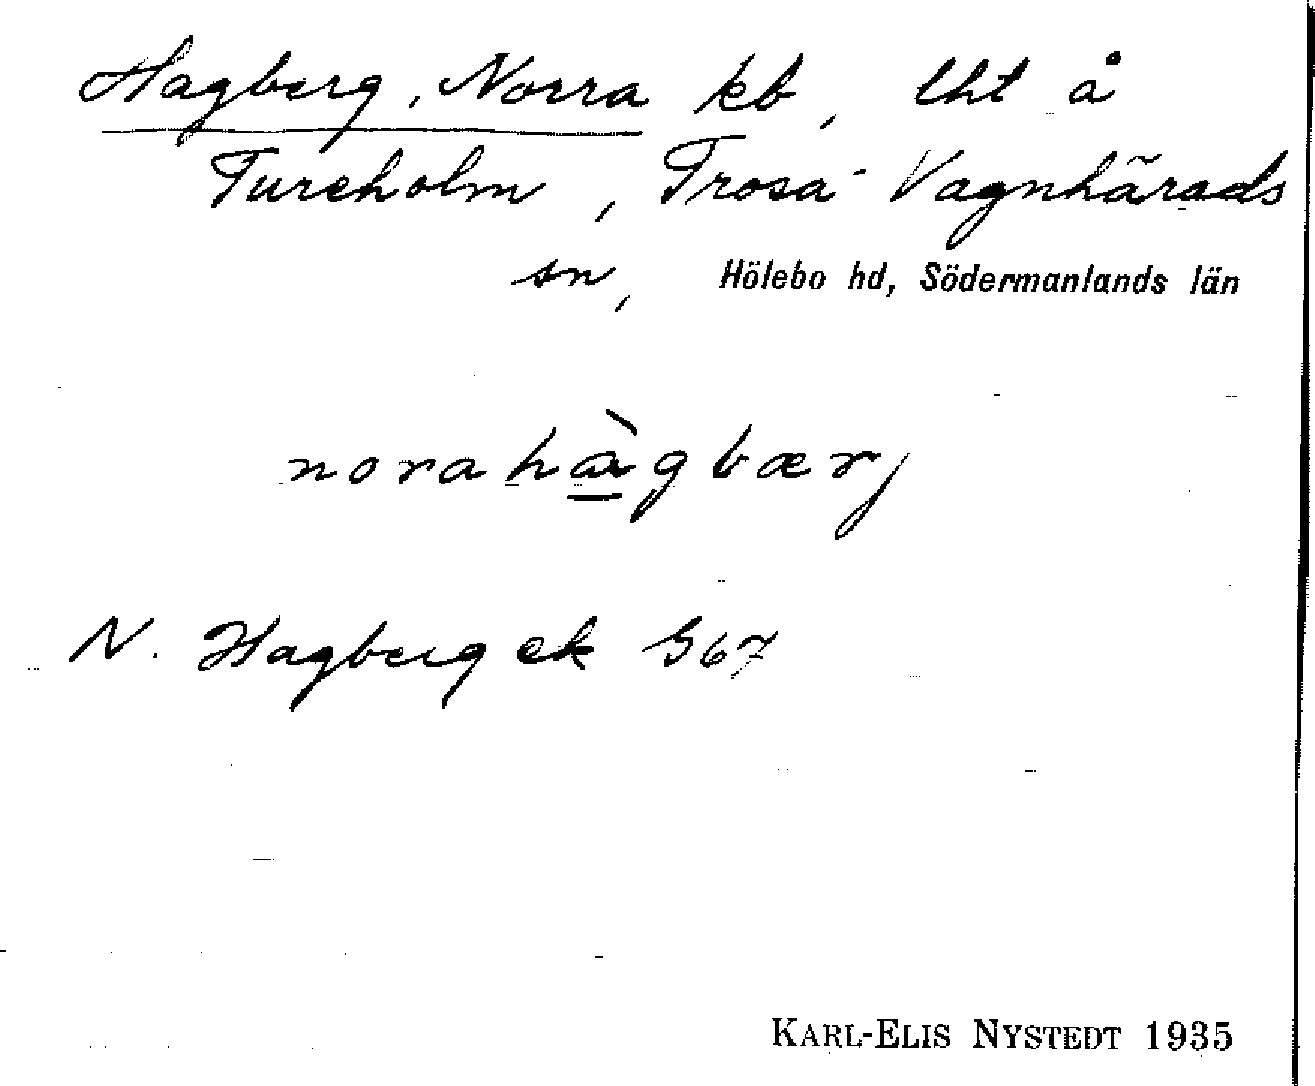 Hagberg, Norra kb, lht å
Tureholm, Trosa-Vagnhärads
sn, Hölebo hd, Södermanlands län
norahàgbærj
N. Hagberg ek G67
KARL-ELIS NYSTEDT 1935